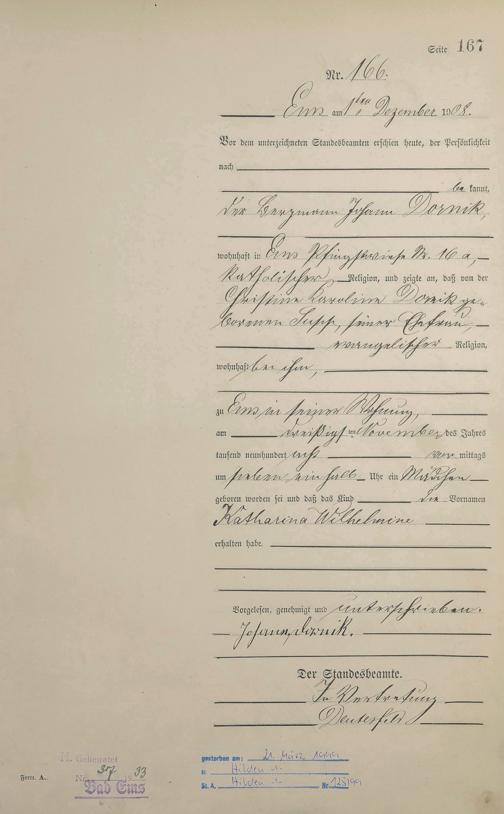 Seite 167
Nr. 166.
Ems am 1ten Dezember 1908.
Vor dem unterzeichneten Standesbeamten erschien heute, der Persönlichkeit
nach
be kannt,
der Bergmann Johann Dornik,
wohnhaft in Ems Pfingstwiese Nr. 16 a,
katholischer Religion, und zeigte an, daß von der
Christine Karoline Dornik ge-
bornen, seiner Ehefrau,
evangelischer Religion,
wohnhaft bei ihm,
zu Ems in seiner Wohnung,
am dreißigsten November des Jahres
tausend neunhundert acht vor mittags
um sieben einhalb Uhr ein Mädchen
geboren worden sei und daß das Kind die Vornamen
Katharina Wilhelmine
erhalten habe.
Vorgelesen, genehmigt und unterschrieben.
Johann Dornik.
Der Standesbeamte.
In Vertretung
H. Geheiratet
Nr. 33
Bad Ems
Form. A.
gestorben am: 21. März 1999
in Hilden
St. A. Hilden Nr. 125/99